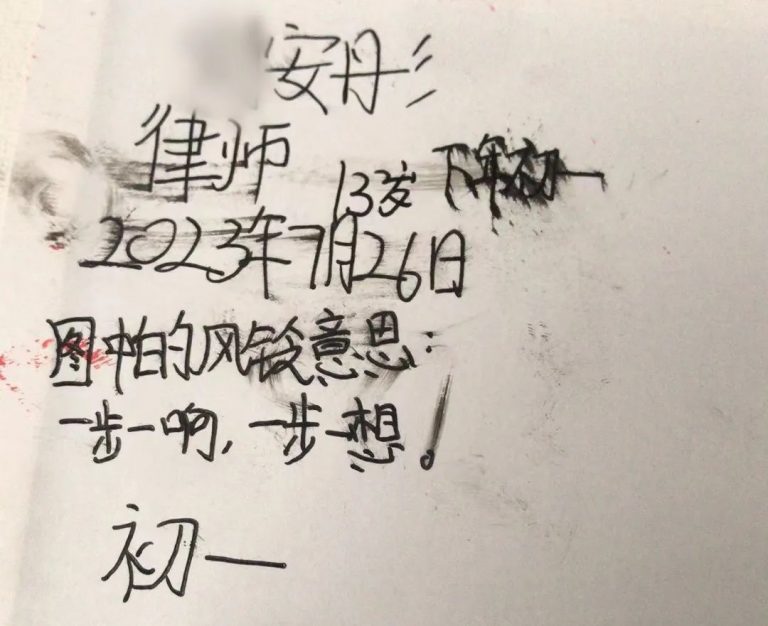 安彤
律师 13岁 下年初一
2023年7月26日
图帕的风铃意思：
一步一啊，一步一想！
初一